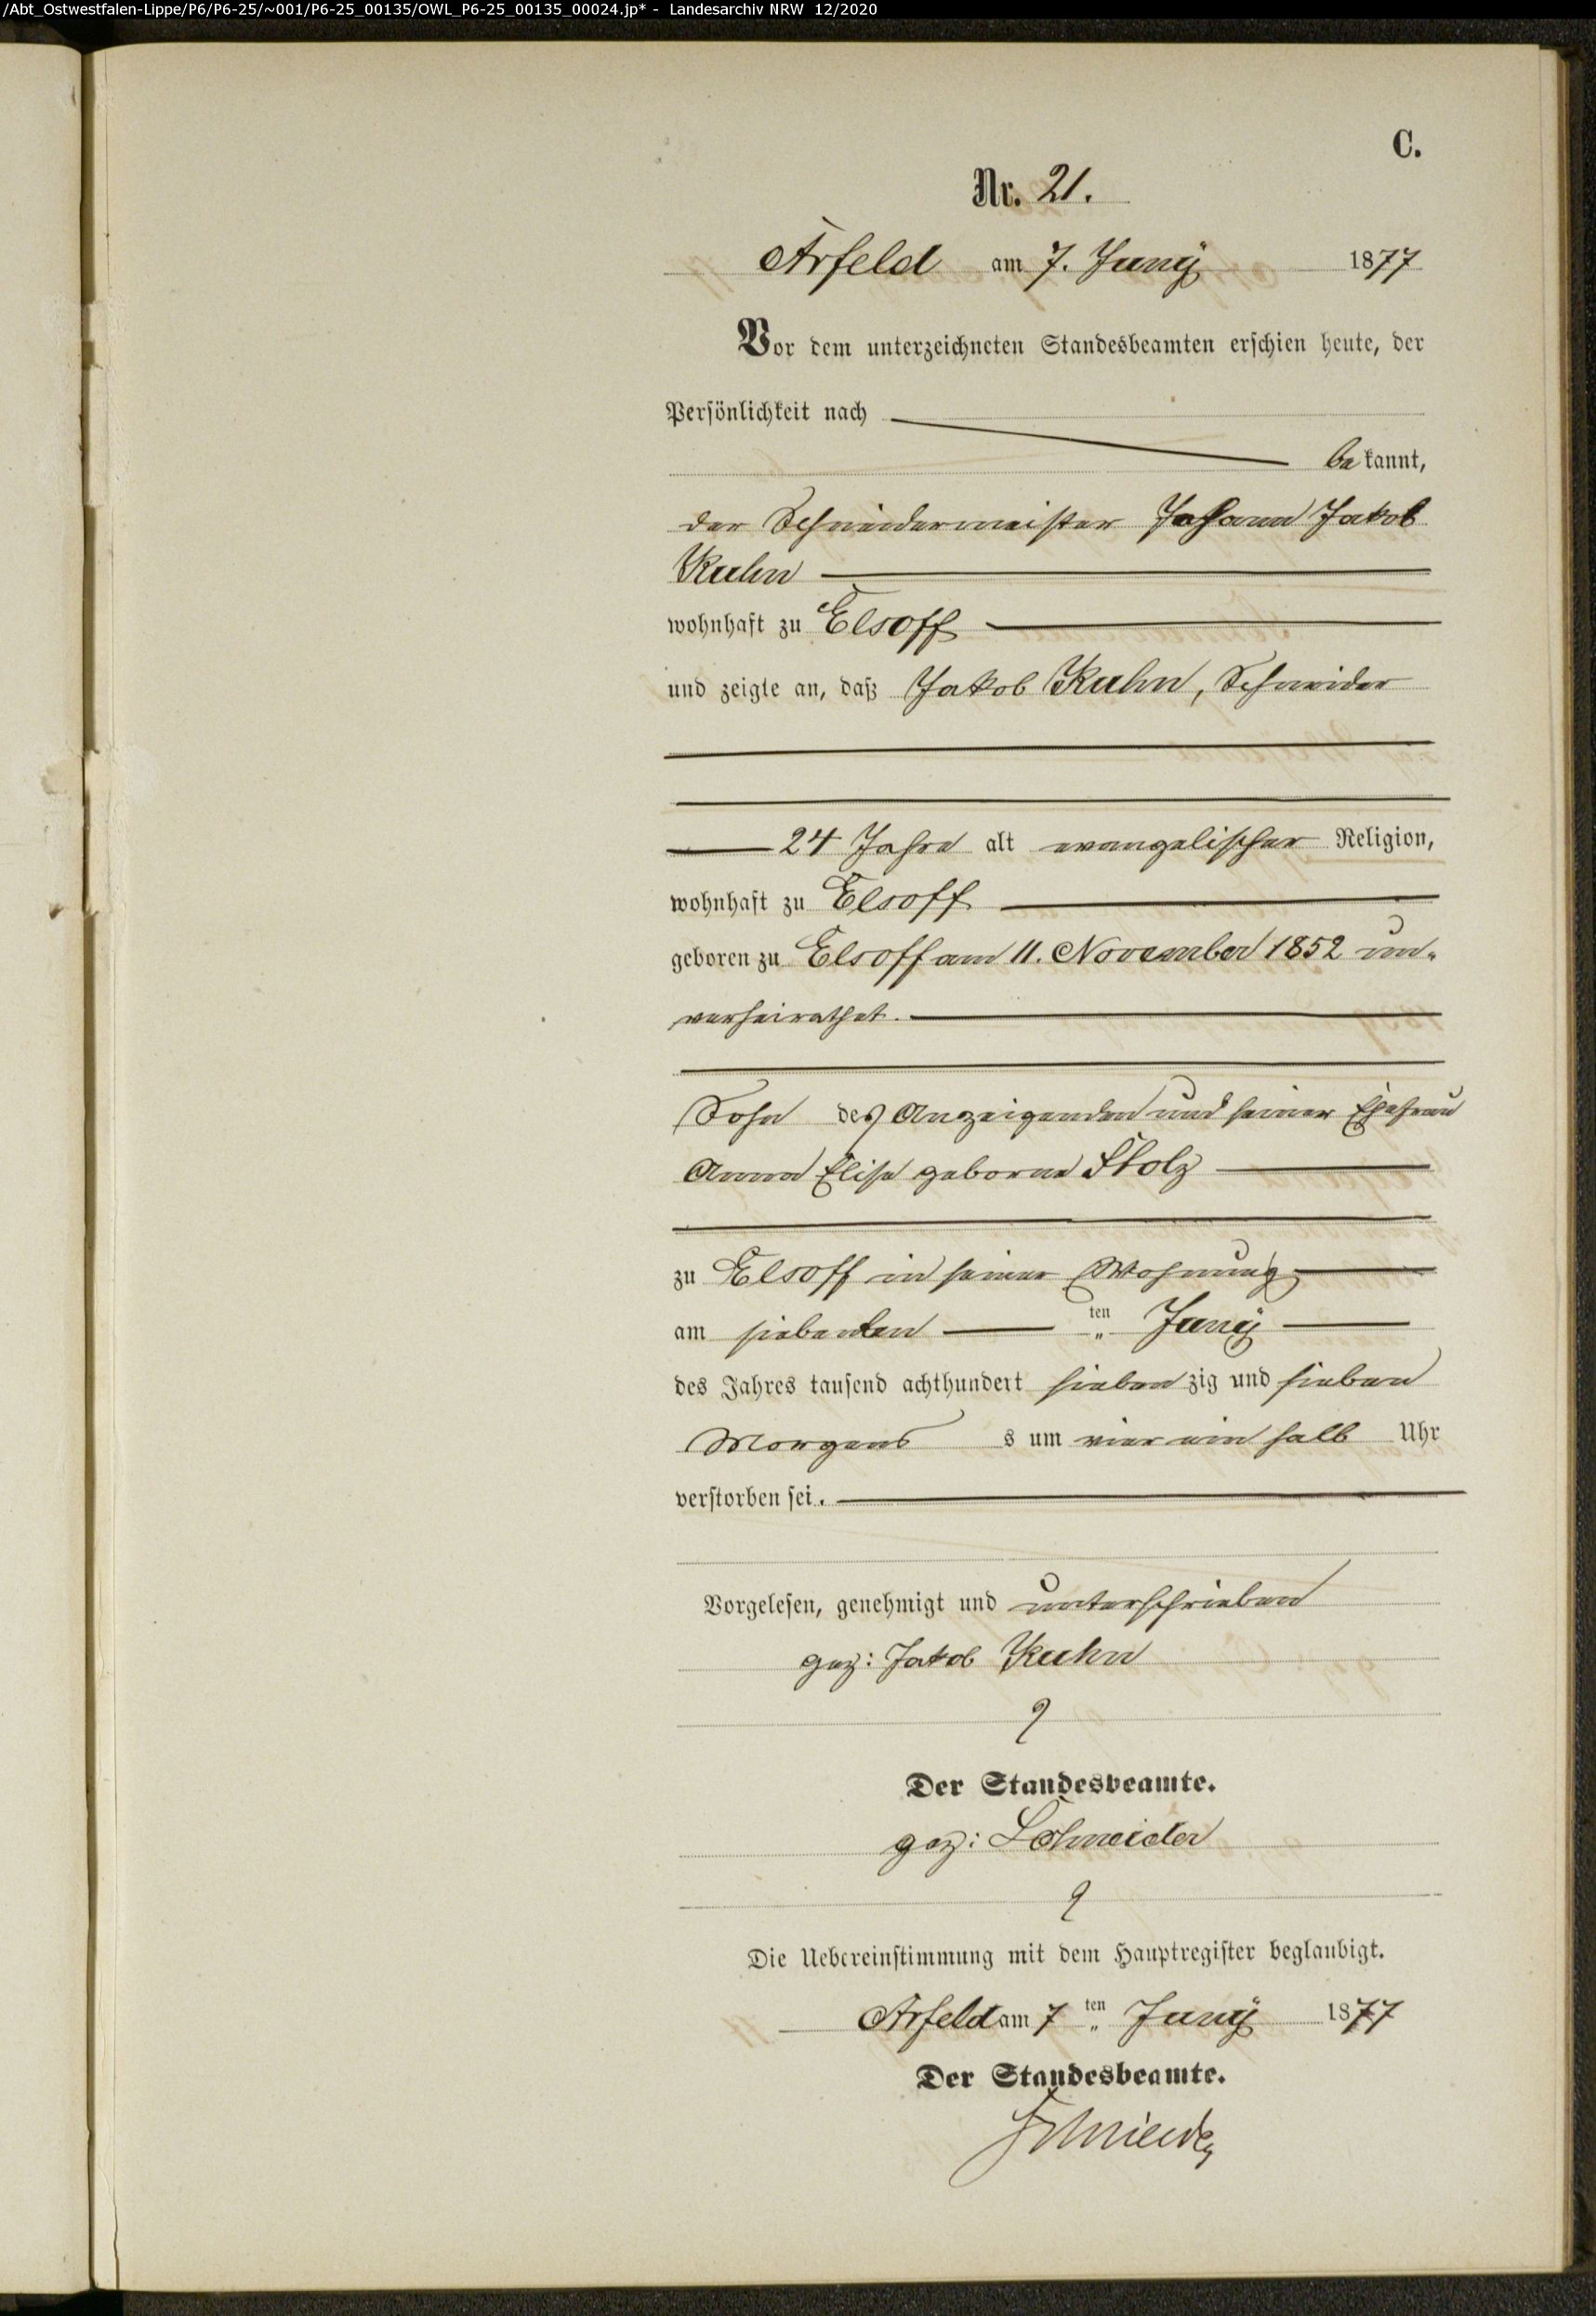 /Abt_Ostwestfalen-Lippe/P6/P6-25/~001/P6-25_00135/OWL_P6-25_00135_00024.jp* - Landesarchiv NRW 12/2020
C.
Nr. 21.
Arfeld am 7. Juny 1877
Vor dem unterzeichneten Standesbeamten erschien heute, der
Persönlichkeit nach
bekannt,
der Schneidermeister Johann Jakob
Kuhn
wohnhaft zu Elsoff
und zeigte an, daß Jakob Kuhn, Schneider
24 Jahre alt evangelischer Religion,
wohnhaft zu Elsoff
geboren zu Elsoff am 11. November 1852 un-
verheirathet.
Sohn des Anzeigenden und seiner Ehefrau
Anna Elise geborne Stolz
zu Elsoff in seiner Wohnung
am siebenten ten Juny
des Jahres tausend achthundert siebenzig und sieben
Morgens s um vier ein halb Uhr
verstorben sei.
Vorgelesen, genehmigt und unterschrieben
gez: Jakob Kuhn
Der Standesbeamte.
gez: Schneider
Die Uebereinstimmung mit dem Hauptregister beglaubigt.
Arfeld am 7 ten Juny 1877
Der Standesbeamte.
Schneider